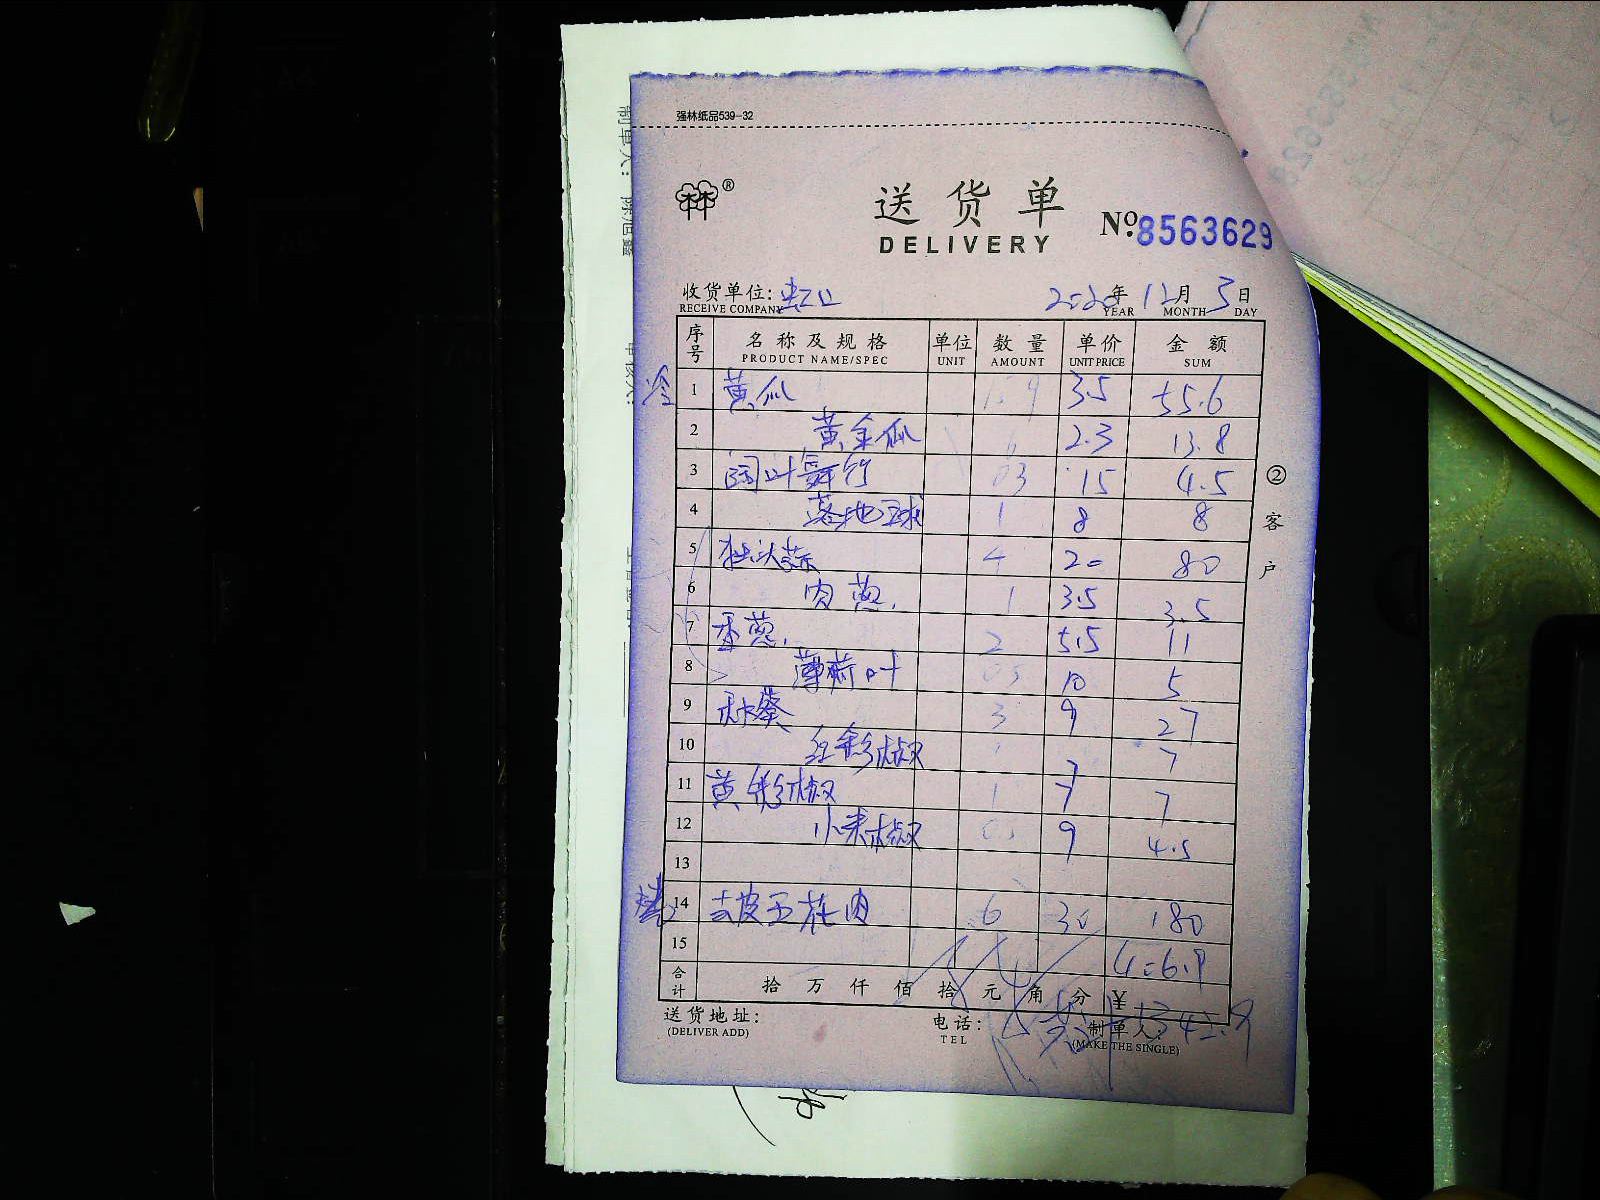 强林纸品539-32
送货单
DELIVERY
№.8563629
收货单位: 2020年12月3日
RECEIVE COMPANY YEAR MONTH DAY
序号 名称及规格 单位 数量 单价 金额
PRODUCT NAME/SPEC UNIT AMOUNT UNIT PRICE SUM
冷 1 黄瓜 3.5 55.6
2 黄金瓜 6 2.3 13.8
3 阔叶舞竹 03 15 4.5
4 落地球 1 8 8
5 独头蒜 4 20 80
6 肉葱 1 3.5 3.5
7 香葱 2 5.5 11
8 薄荷叶 05 10 5
9 秋葵 3 9 27
10 红彩椒 1 7 7
11 黄彩椒 1 7 7
12 小米椒 05 9 4.5
13
14 去皮五花肉 6 30 180
15 406.9
合计 拾万仟佰拾元角分 ¥
送货地址: 电话: 制单人:
(DELIVER ADD) TEL (MAKE THE SINGLE)
②客户
制单人:
审核人: